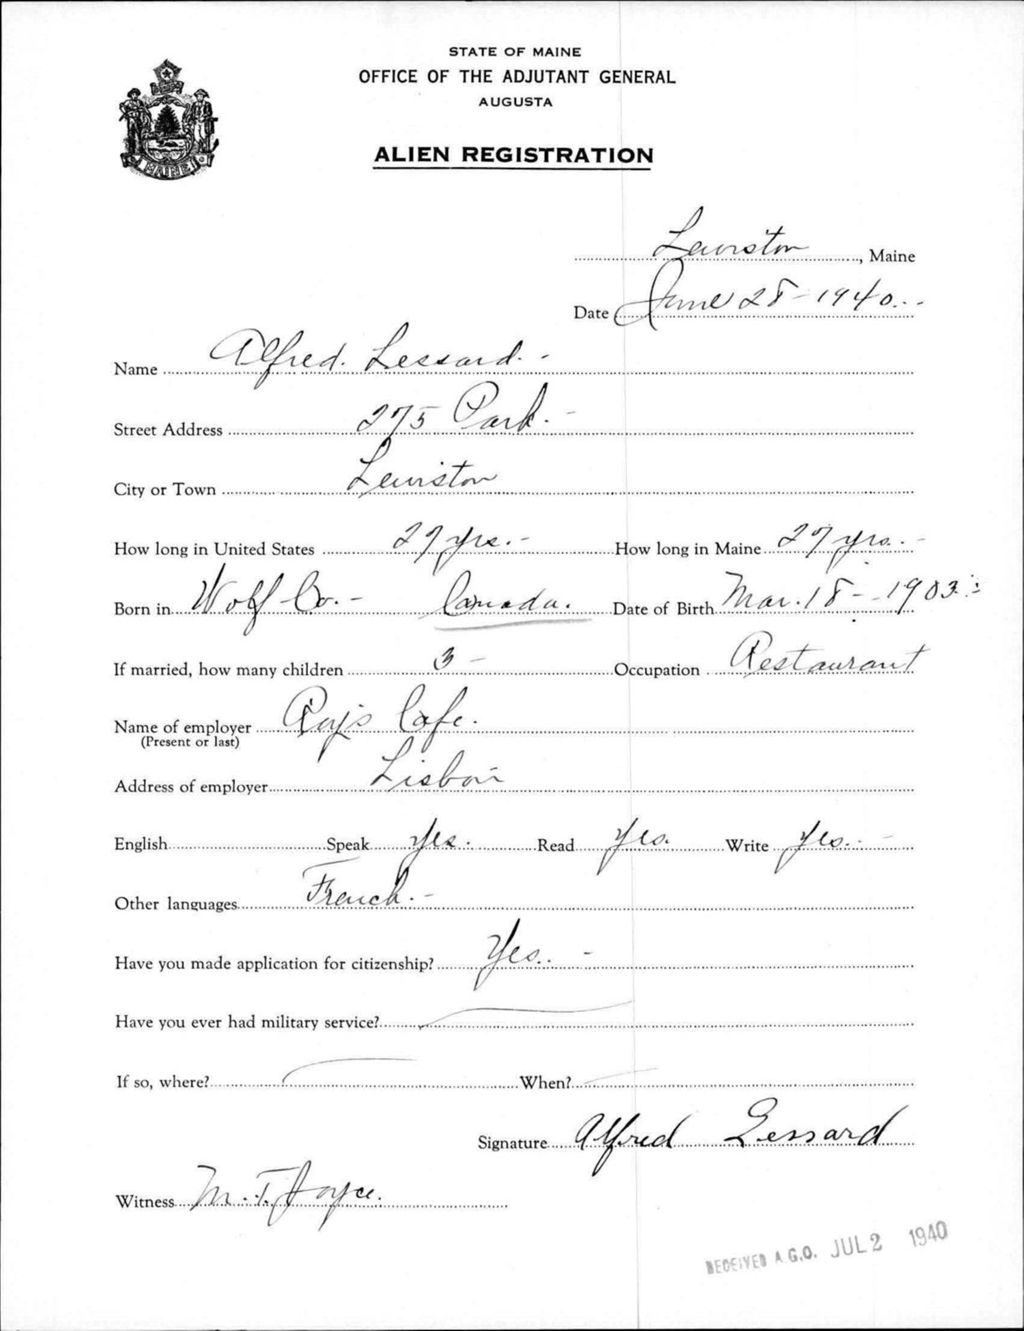 STATE OF MAINE
OFFICE OF THE ADJUTANT GENERAL
AUGUSTA
ALIEN REGISTRATION
MAINE
Lewiston, Maine
Date June 28-1940
Name Alfred Lessard
Street Address 275 Park
City or Town Lewiston
How long in United States 27 yrs. How long in Maine 27 yrs.
Born in Wolf Co. - Canada. Date of Birth Mar. 18 - 1903
If married, how many children 3 Occupation Restaurant
Name of employer Roy's Cafe.
(Present or last)
Address of employer Lisbon
English Speak Yes. Read Yes. Write Yes.
Other languages French.
Have you made application for citizenship? Yes.
Have you ever had military service?
If so, where? When?
Signature Alfred Lessard
Witness M. T. Joyce.
RECEIVED A.G.O. JUL 2 1940